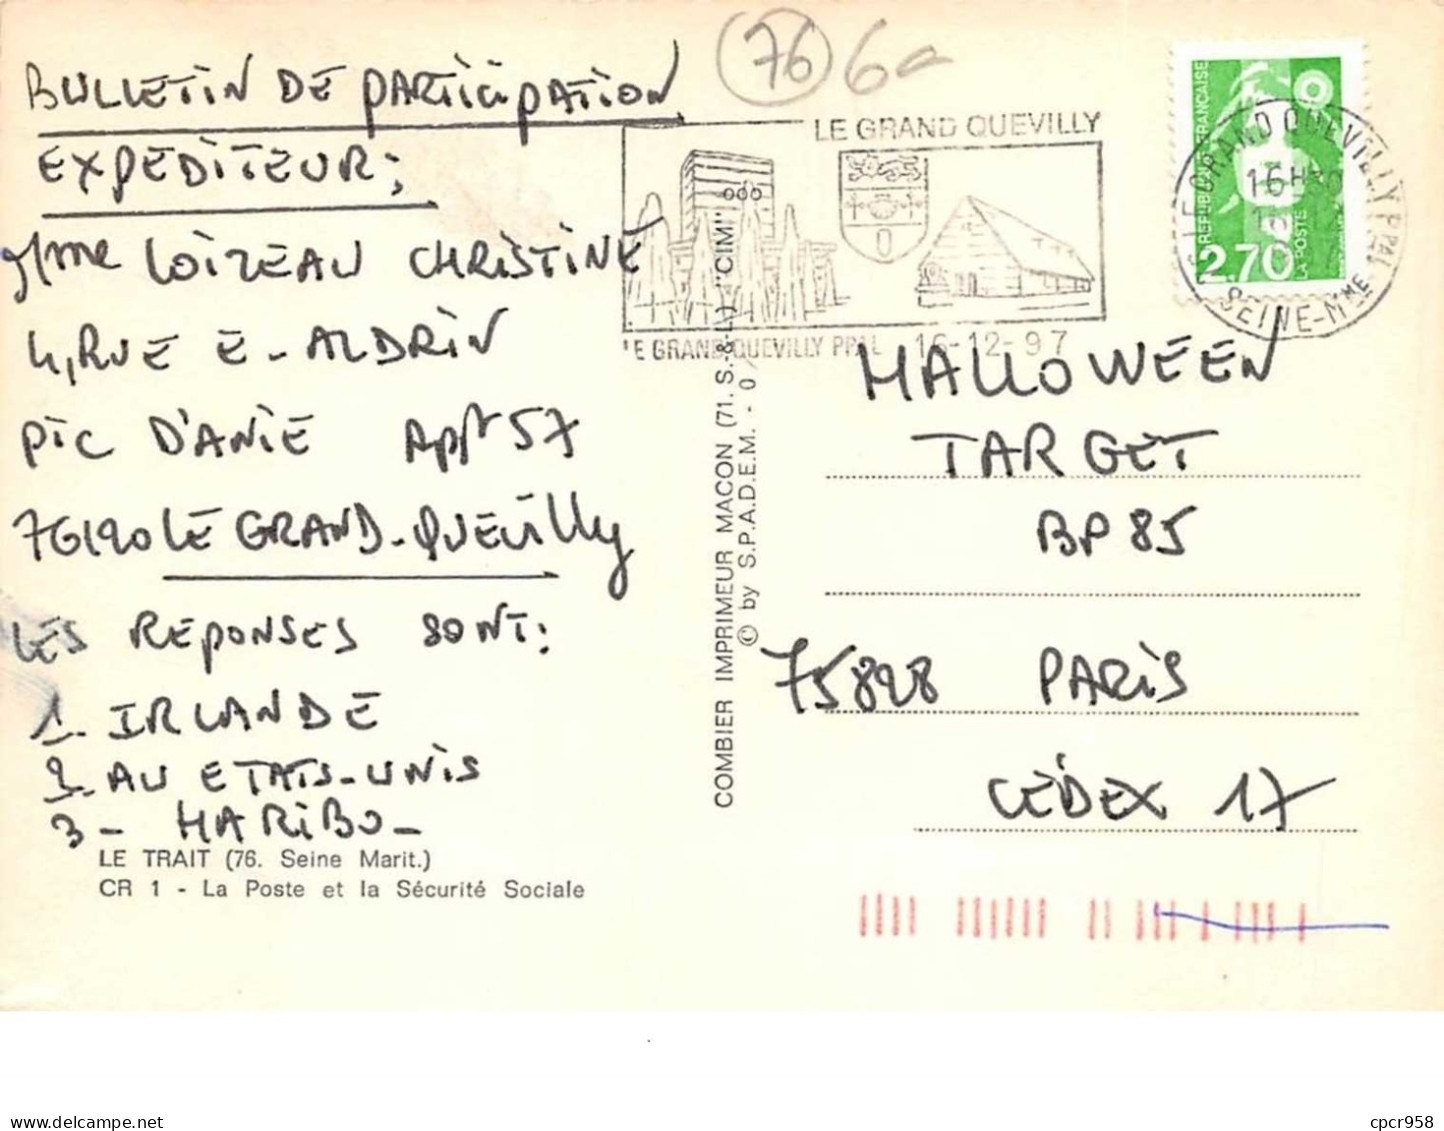 76 6
BULLETIN DE PARTICIPATION
EXPEDITEUR:
Mme LOIZEAU CHRISTINE
4, RUE E-ALDRIN
PIC D'ANIE APPt 57
76120 LE GRAND-QUEVILLY
LES REPONSES SONT:
1- IRLANDE
2- AU ETATS-UNIS
3- HARIBO-
LE TRAIT (76. Seine Marit.)
CR 1 - La Poste et la Sécurité Sociale
COMBIER IMPRIMEUR MACON (71. S.-&-L.) "CIM"
© by S.P.A.D.E.M. - 0
LE GRAND QUEVILLY
LE GRAND QUEVILLY PPAL 16-12-97
REPUBLIQUE FRANÇAISE
2.70
LA POSTE
LE GRAND QUEVILLY PPAL
16H
SEINE-Mme
HALLOWEEN
TARGET
BP 85
75828 PARIS
CÉDEX 17
cpcr958